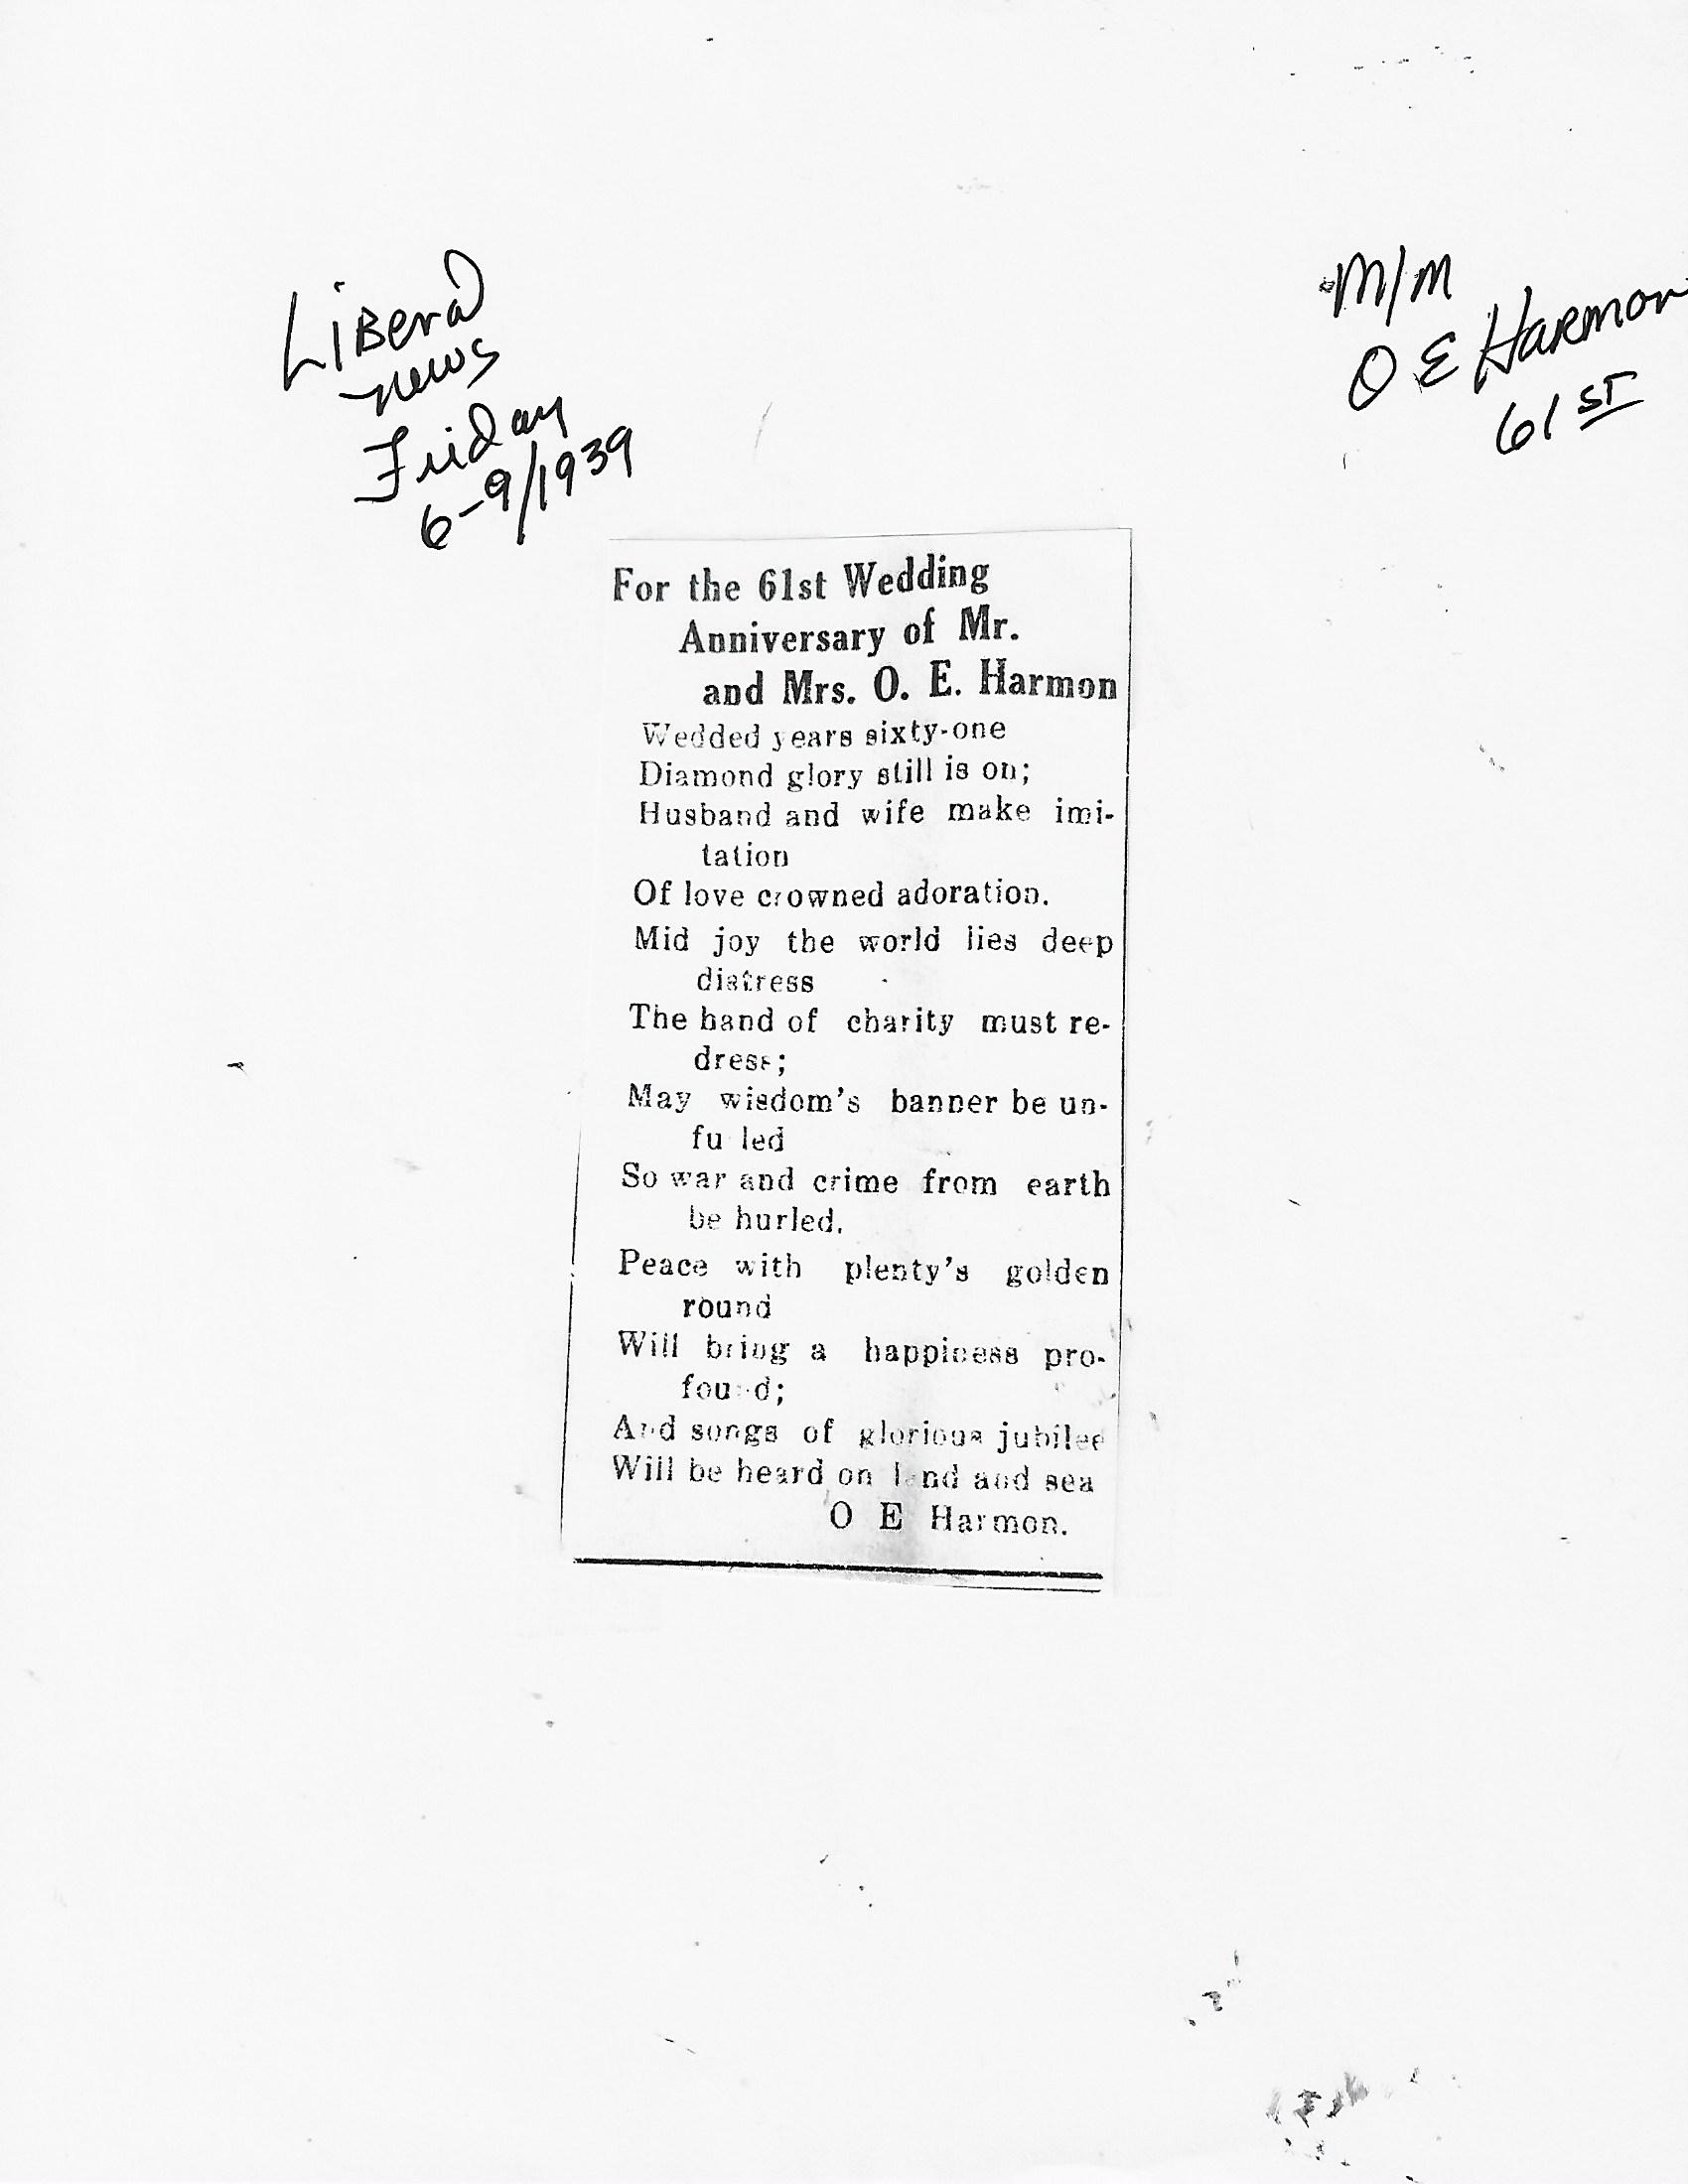 Liberal
news
Friday
6-9/1939
M/M
O E Harmon
61st
For the 61st Wedding
Anniversary of Mr.
and Mrs. O. E. Harmon
Wedded years sixty-one
Diamond glory still is on;
Husband and wife make imi-
tation
Of love crowned adoration.
Mid joy the world lies deep
distress
The hand of charity must re-
dress;
May wisdom's banner be un-
fu led
So war and crime from earth
be hurled.
Peace with plenty's golden
round
Will bring a happiness pro-
found;
And songs of glorious jubilee
Will be heard on land and sea
O E Harmon.